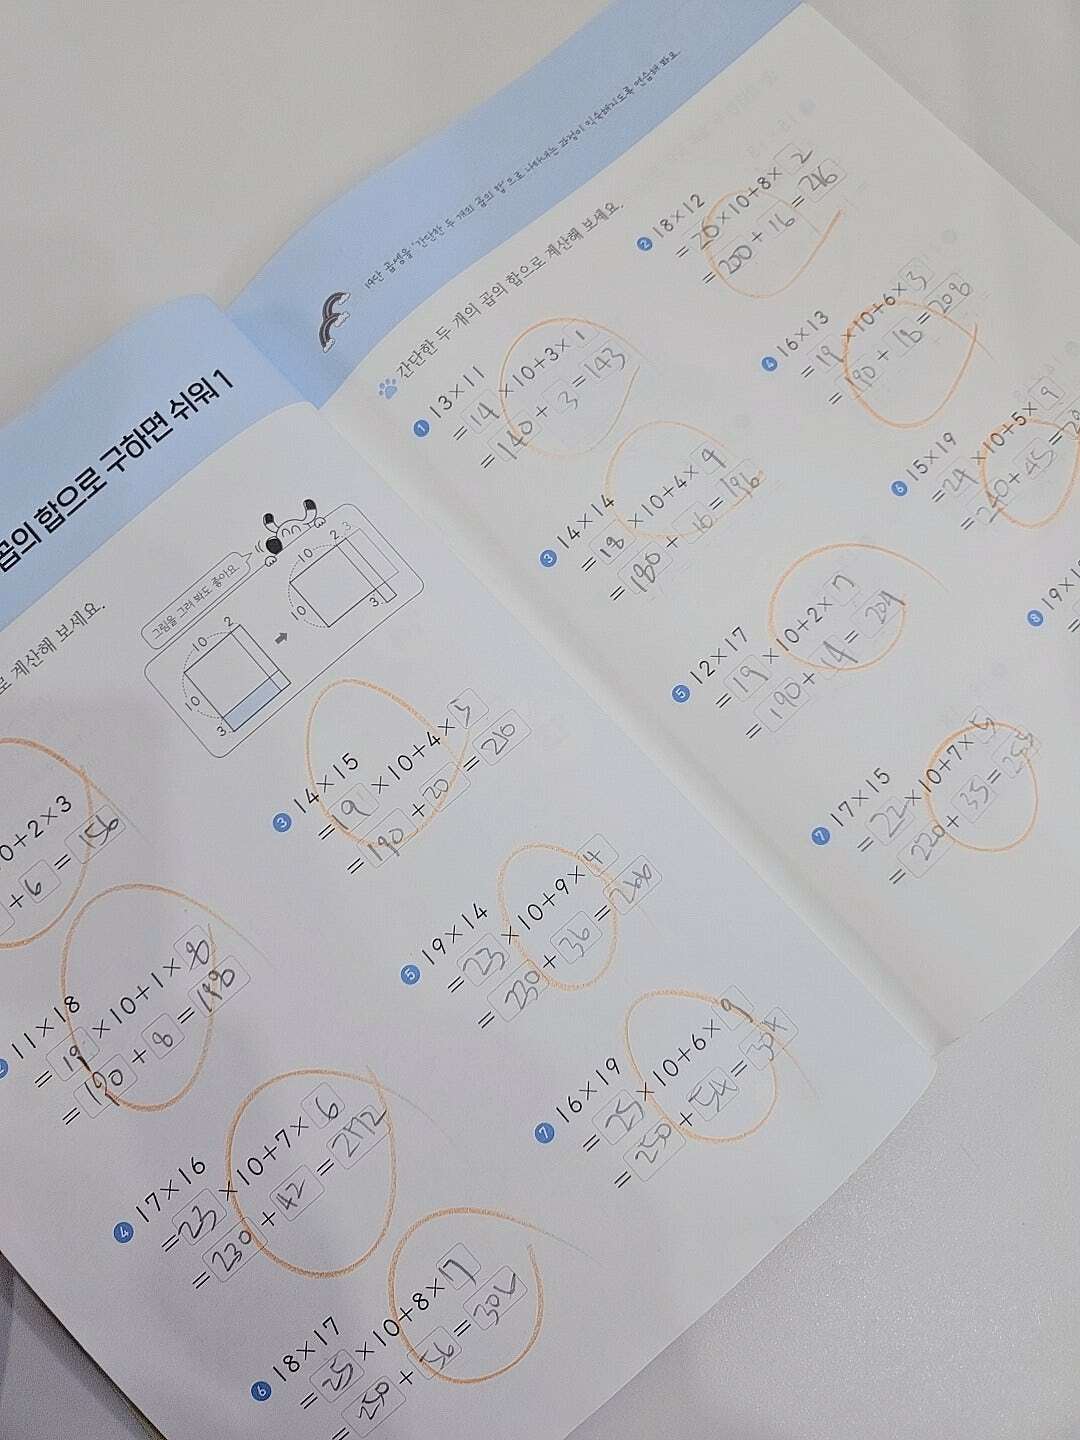 곱의 합으로 구하면 쉬워 1
로 계산해 보세요.
그림을 그려 봐도 좋아요
10 2
10
3
10 2 3
10
3
0+2×3
+6=156
11×18
=19×10+1×8
=190+8=198
3 14×15
=19×10+4×5
=190+20=210
4 17×16
=23×10+7×6
=230+42=272
5 19×14
=23×10+9×4
=230+36=266
6 18×17
=25×10+8×7
=250+56=306
7 16×19
=25×10+6×9
=250+54=304
19단 곱셈을 '간단한 두 개의 곱의 합'으로 나타내는 과정이 익숙해지도록 연습해 봐요.
간단한 두 개의 곱의 합으로 계산해 보세요.
1 13×11
=14×10+3×1
=140+3=143
2 18×12
=20×10+8×2
=200+16=216
3 14×14
=18×10+4×4
=180+16=196
4 16×13
=19×10+6×3
=190+18=208
5 12×17
=19×10+2×7
=190+14=204
6 15×19
=24×10+5×9
=240+45=
7 17×15
=22×10+7×5
=220+35=255
8 19×1